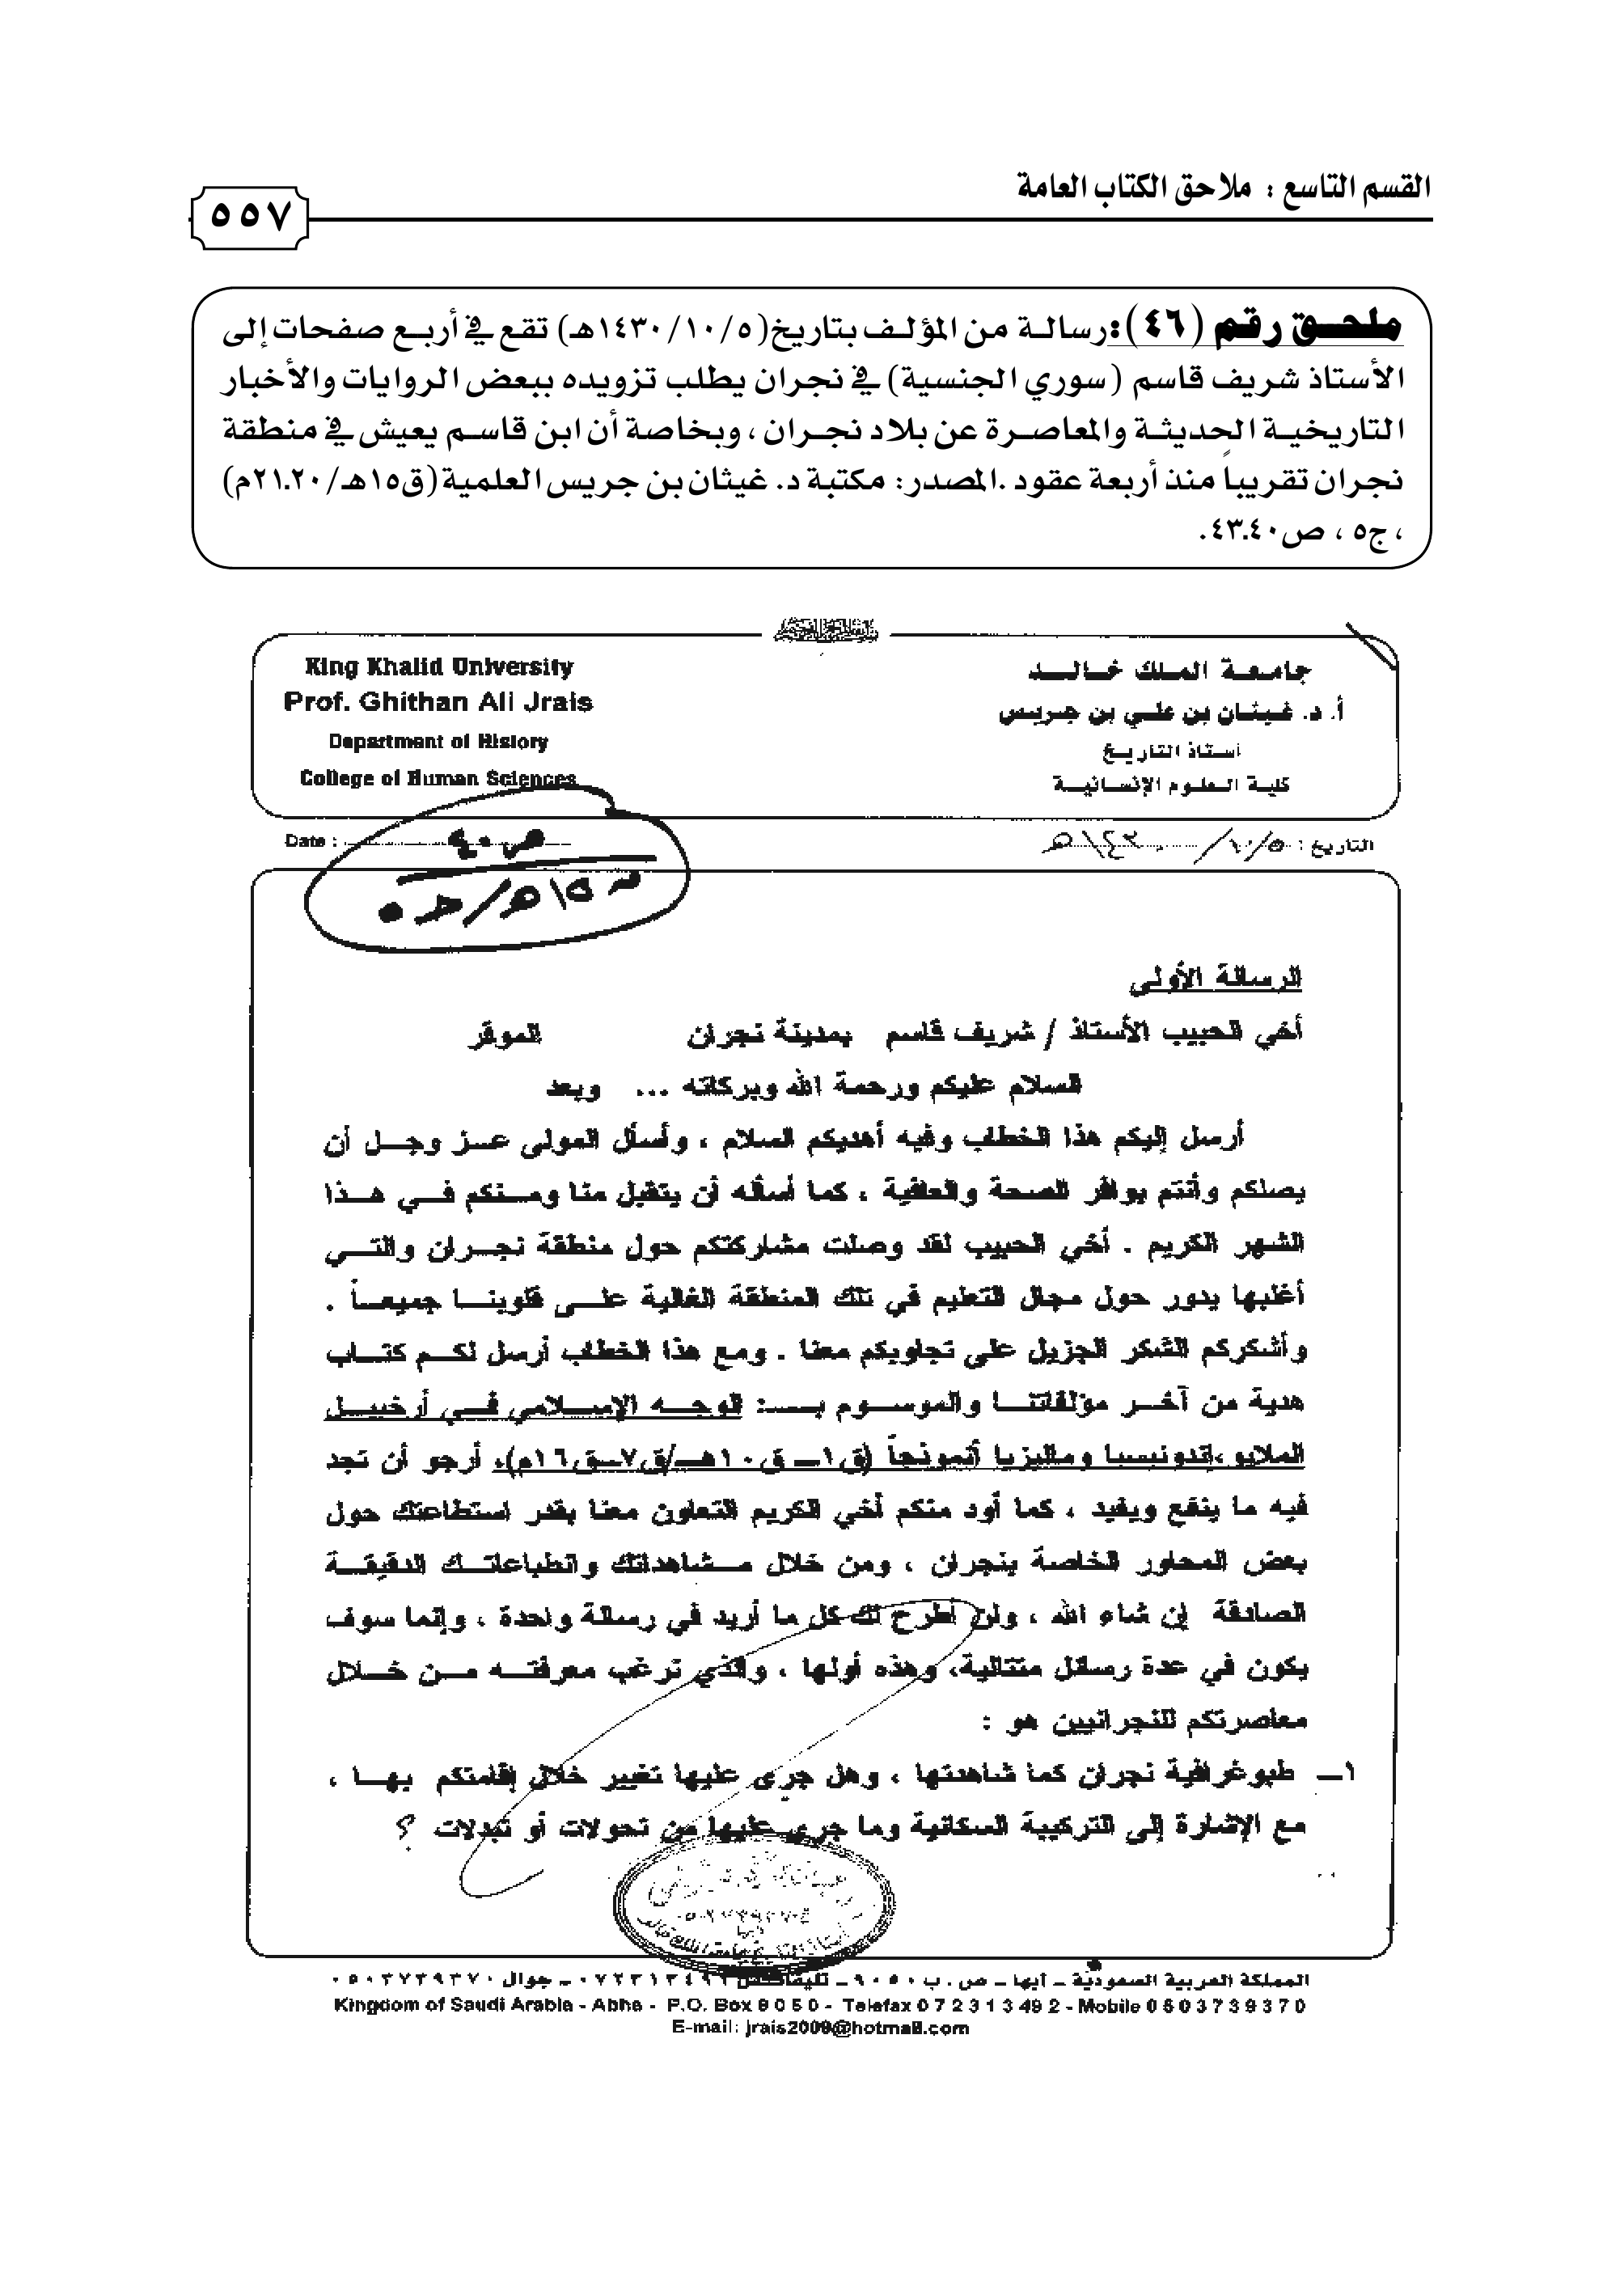 القسم التاسع : ملاحق الكتاب العامة
٥٥٧
ملحق رقم (٤٦): رسالة من المؤلف بتاريخ(١٤٣٠/١٠/٥هـ) تقع في أربع صفحات إلى
الأستاذ شريف قاسم (سوري الجنسية) في نجران يطلب تزويده ببعض الروايات والأخبار
التاريخية الحديثة والمعاصرة عن بلاد نجران ، وبخاصة أن ابن قاسم يعيش في منطقة
نجران تقريباً منذ أربعة عقود .المصدر: مكتبة د. غيثان بن جريس العلمية(ق١٥هـ/٢١.٢٠م)
، ج٥ ، ص٤٣.٤٠.
جامعة الملك خالد
أ. د. غيثان بن علي بن جريس
أستاذ التاريخ
كلية العلوم الإنسانية
King Khalid University
Prof. Ghithan Ali Jrais
Department of History
College of Human Sciences
التاريخ : ١٤٣٠/١٠/٥هـ
Date :
ص٤٠
ق١٥هـ/جـ٥
الرسالة الأولى
أخي الحبيب الأستاذ / شريف قاسم بمدينة نجران الموقر
السلام عليكم ورحمة الله وبركاته ... وبعد
أرسل إليكم هذا الخطاب وفيه أهديكم السلام ، وأسأل المولى عز وجل أن
يصلكم وأنتم بوافر الصحة والعافية ، كما أسأله أن يتقبل منا ومنكم في هذا
الشهر الكريم . أخي الحبيب لقد وصلت مشاركتكم حول منطقة نجران والتي
أغلبها يدور حول مجال التعليم في تلك المنطقة الغالية على قلوبنا جميعاً .
وأشكركم الشكر الجزيل على تجاوبكم معنا . ومع هذا الخطاب أرسل لكم كتاب
هدية من آخر مؤلفاتنا والموسوم بـ: الوجه الإسلامي في أرخبيل
الملايو ،إندونيسيا وماليزيا أنموذجاً (ق١ــ ق١٠هـ/ق٧ــق١٦م)، أرجو أن تجد
فيه ما ينفع ويفيد ، كما أود منكم أخي الكريم التعاون معنا بقدر استطاعتك حول
بعض المحاور الخاصة بنجران ، ومن خلال مشاهداتك وانطباعاتك الدقيقة
الصادقة إن شاء الله ، ولن أطرح لك كل ما أريد في رسالة واحدة ، وإنما سوف
يكون في عدة رسائل متتالية، وهذه أولها ، والذي نرغب معرفته من خلال
معاصرتكم للنجرانيين هو :
١ــ طبوغرافية نجران كما شاهدتها ، وهل جرى عليها تغيير خلال إقامتكم بها ،
مع الإشارة إلى التركيبة السكانية وما جرى عليها من تحولات أو تبدلات ؟
المملكة العربية السعودية ــ أبها ــ ص . ب ٩٠٥٠ ــ تليفاكس ٠٧٢٣١٣٤٩٢ ــ جوال ٠٥٠٣٧٣٩٣٧٠
Kingdom of Saudi Arabia - Abha - P.O. Box 9050 - Telefax 072313492 - Mobile 0503739370
E-mail: jrais2009@hotmail.com